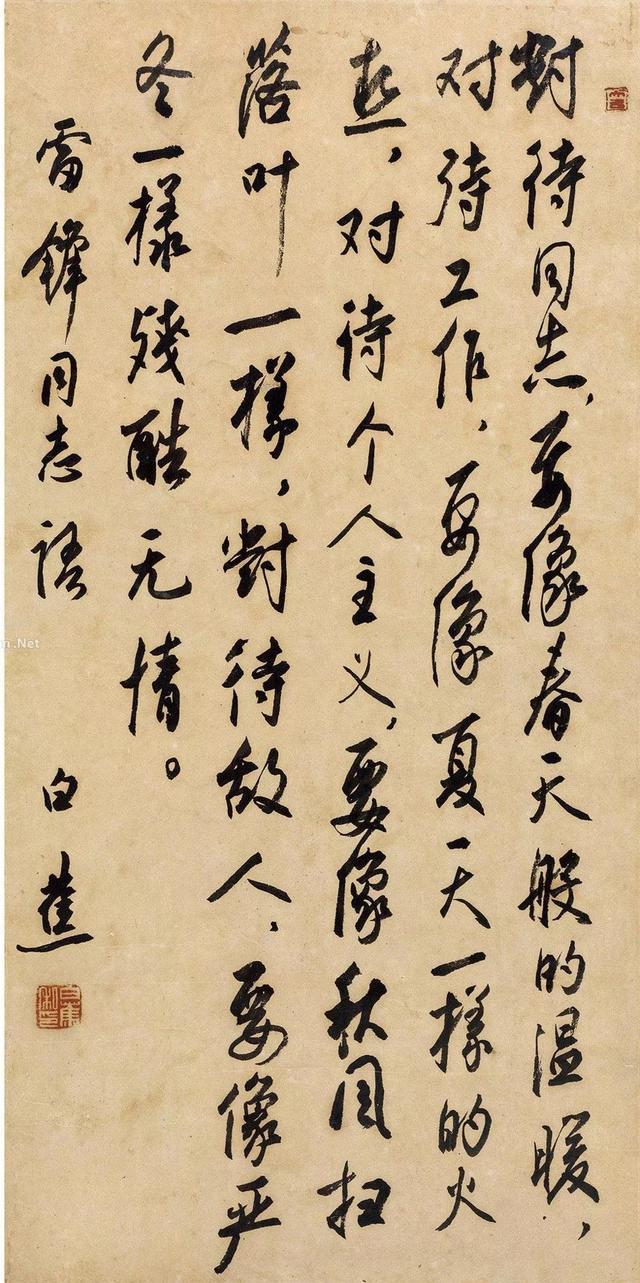 對待同志，要像春天般的温暖，
对待工作，要像夏天一樣的火
热，对待个人主义，要像秋风扫
落叶一樣，對待敌人，要像严
冬一樣残酷无情。
雷鋒同志语
白蕉